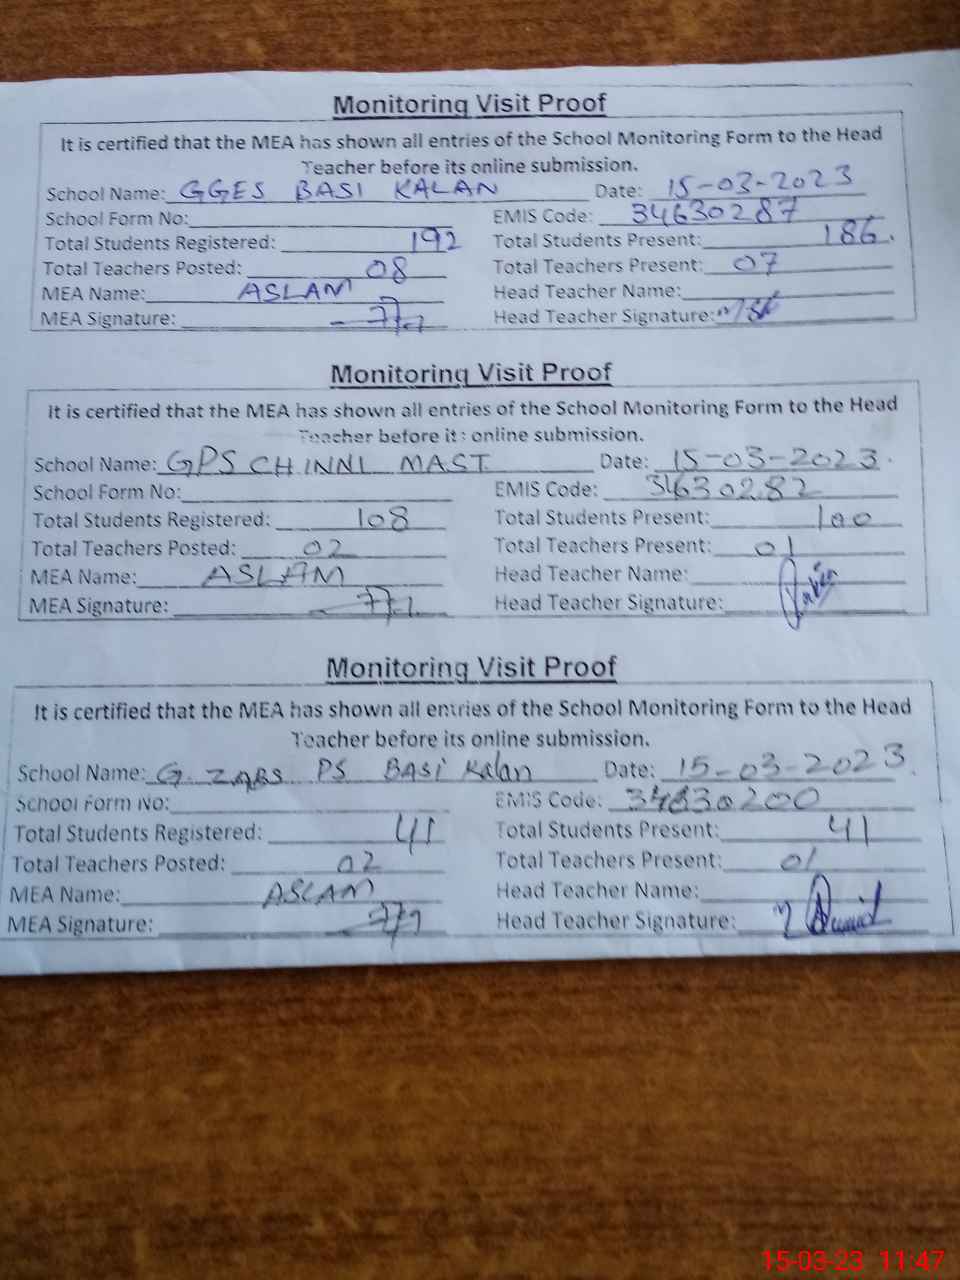 Monitoring Visit Proof
It is certified that the MEA has shown all entries of the School Monitoring Form to the Head
Teacher before its online submission.
School Name: GGES BASI KALAN Date: 15-03-2023
School Form No: EMIS Code: 34630287
Total Students Registered: 192 Total Students Present: 186.
Total Teachers Posted: 08 Total Teachers Present: 07
MEA Name: ASLAM Head Teacher Name:
MEA Signature: Head Teacher Signature:
Monitoring Visit Proof
It is certified that the MEA has shown all entries of the School Monitoring Form to the Head
Teacher before its online submission.
School Name: GPS CHINNI MAST Date: 15-03-2023.
School Form No: EMIS Code: 34630282
Total Students Registered: 108 Total Students Present: 100
Total Teachers Posted: 02 Total Teachers Present: 01
MEA Name: ASLAM Head Teacher Name:
MEA Signature: Head Teacher Signature:
Monitoring Visit Proof
It is certified that the MEA has shown all entries of the School Monitoring Form to the Head
Teacher before its online submission.
School Name: G. PS BASI Kalan Date: 15-03-2023.
School Form No: EMIS Code: 34630200
Total Students Registered: 41 Total Students Present: 41
Total Teachers Posted: 02 Total Teachers Present: 01
MEA Name: ASLAM Head Teacher Name:
MEA Signature: Head Teacher Signature:
15-03-23 11:47